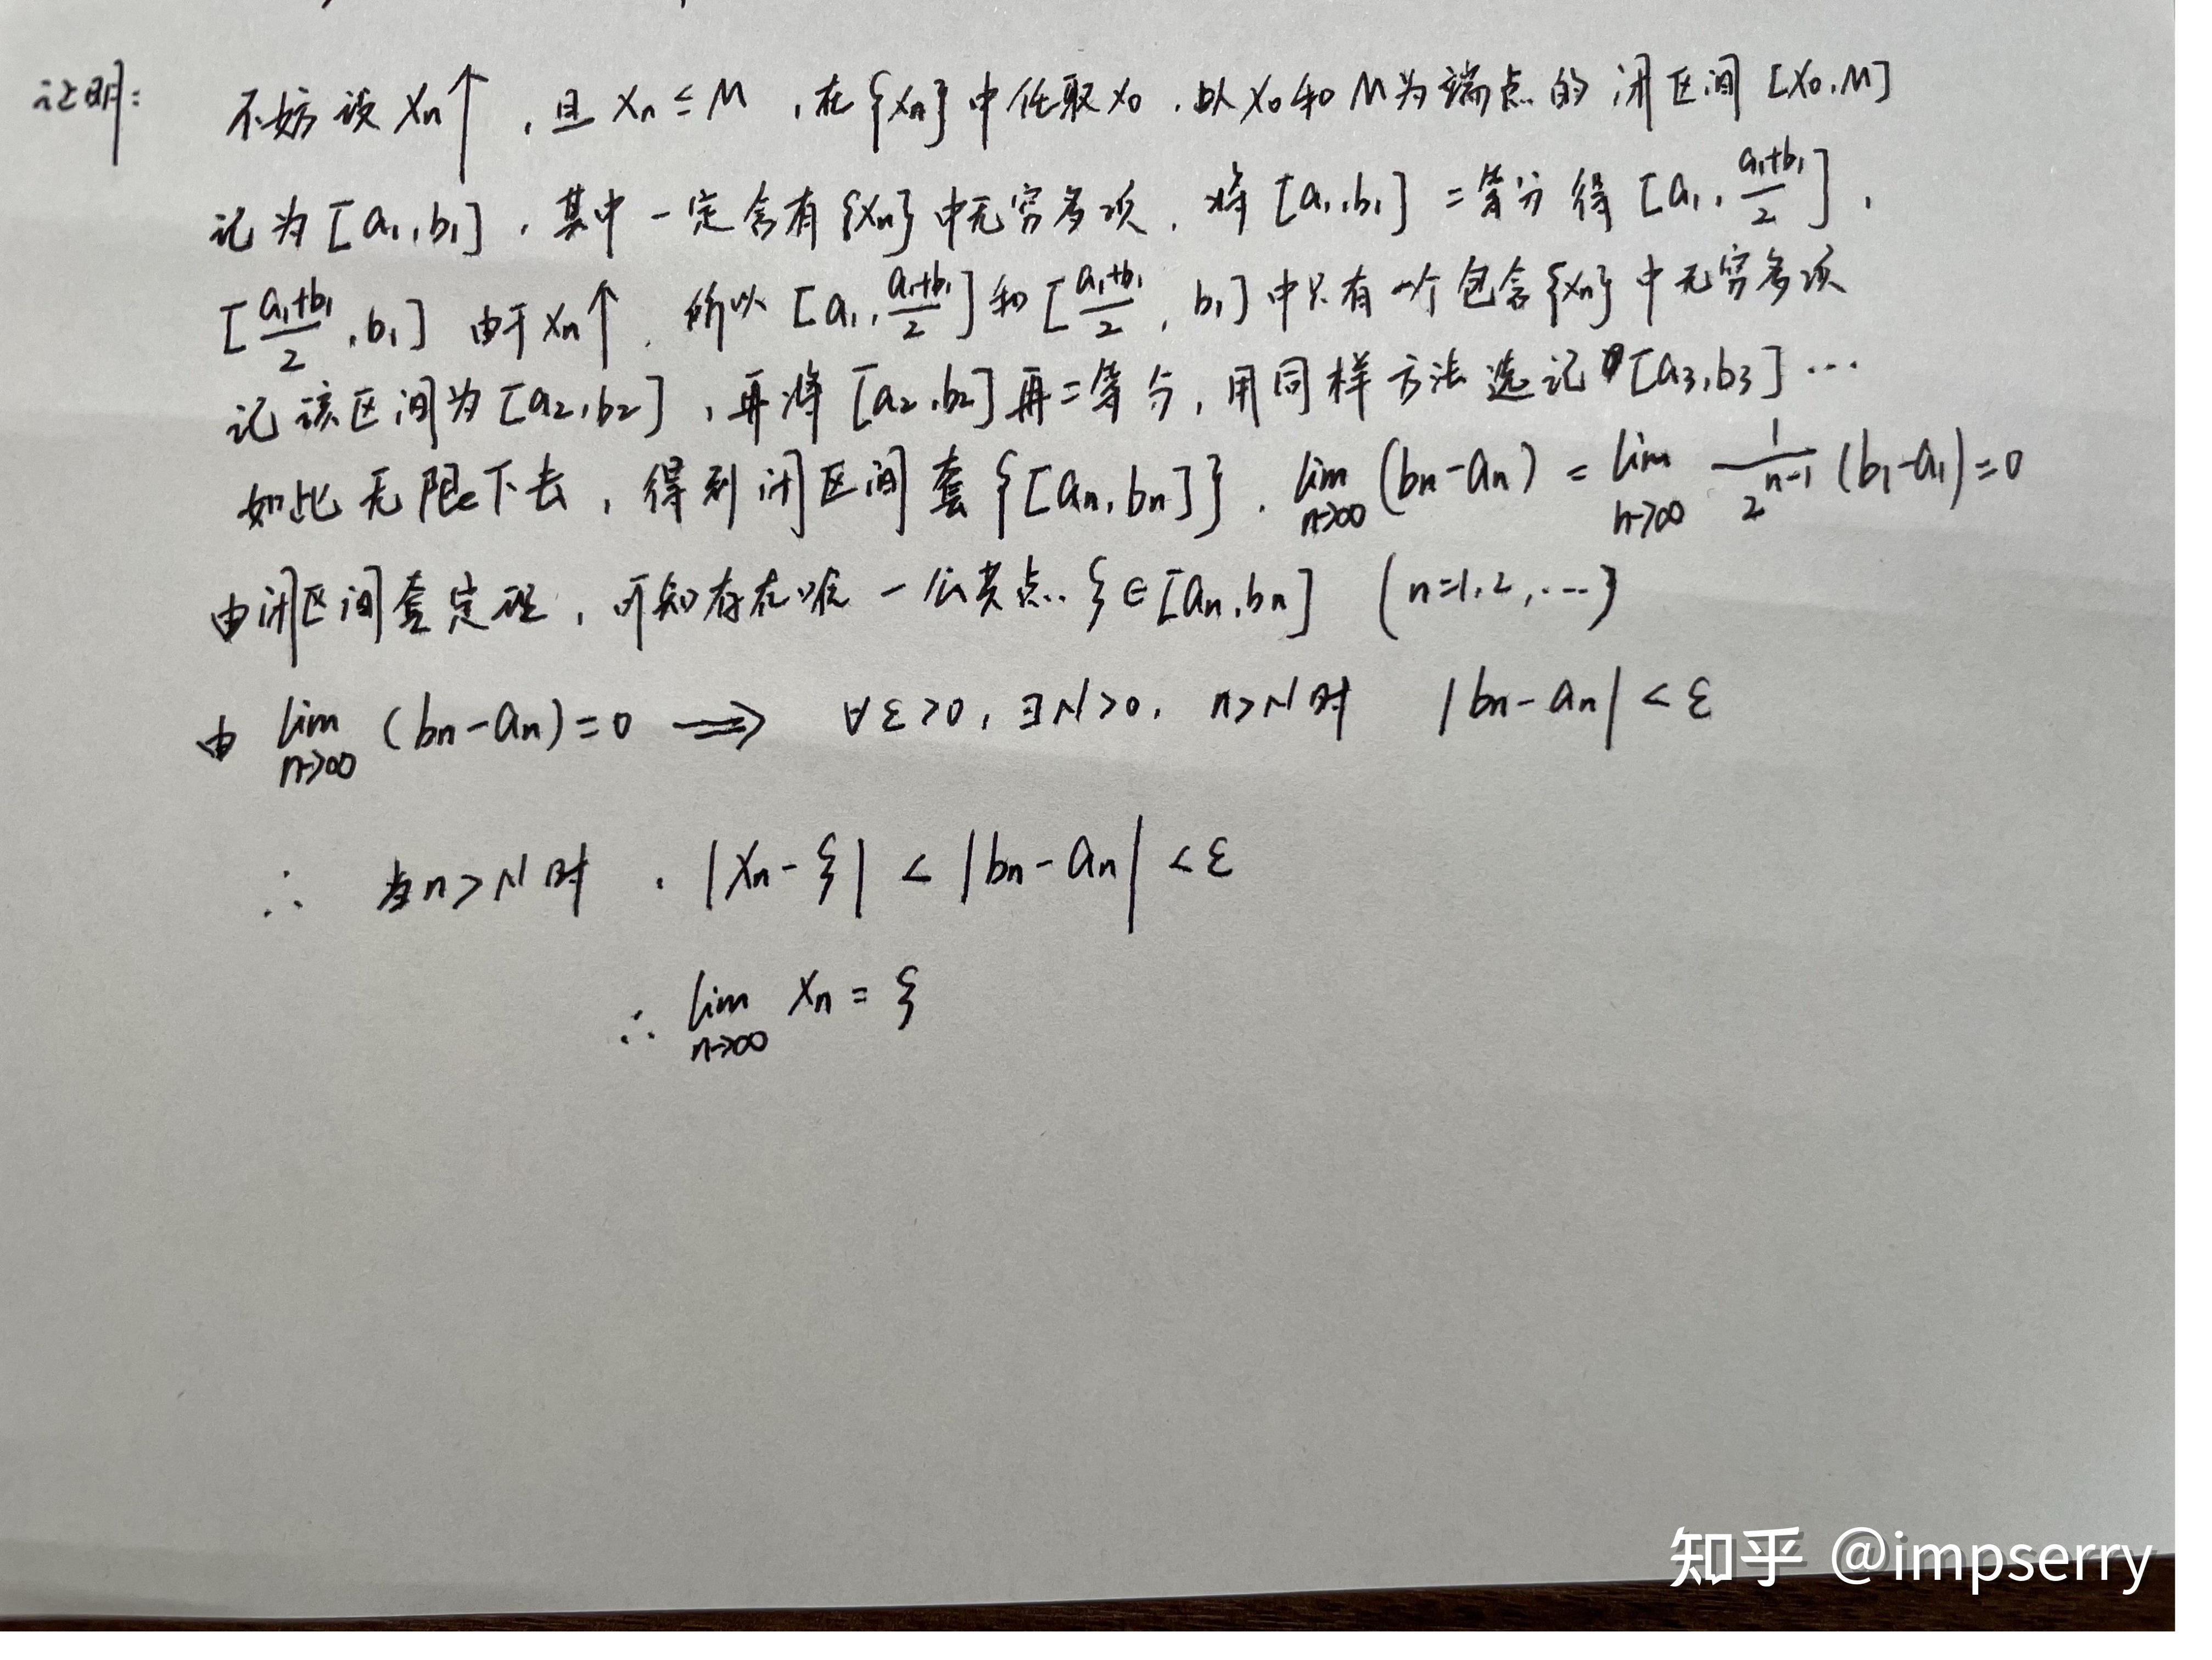 证明: 不妨设 Xn↑, 且 Xn ≤ M, 在{Xn}中任取 X0. 以 X0 和 M 为端点的闭区间 [X0, M]
记为 [a₁, b₁], 其中一定含有{Xn}中无穷多项. 将 [a₁, b₁] 二等分得 [a₁, (a₁+b₁)/2],
[(a₁+b₁)/2, b₁] 由于 Xn↑, 所以 [a₁, (a₁+b₁)/2] 和 [(a₁+b₁)/2, b₁] 中只有一个包含{Xn}中无穷多项
记该区间为 [a₂, b₂], 再将 [a₂, b₂] 再二等分, 用同样方法选记 [a₃, b₃] ⋯
如此无限下去, 得到闭区间套 {[an, bn]}. lim n→∞ (bn-an) = lim n→∞ 1/2ⁿ⁻¹ (b₁-a₁) = 0
由闭区间套定理, 可知存在唯一公共点 ξ ∈ [an, bn] (n=1, 2, ⋯)
由 lim n→∞ (bn-an) = 0 ⟹ ∀ε>0, ∃N>0, n>N时 |bn-an| < ε
∴ 当n>N时, |Xn-ξ| < |bn-an| < ε
∴ lim n→∞ Xn = ξ
知乎 @impserry